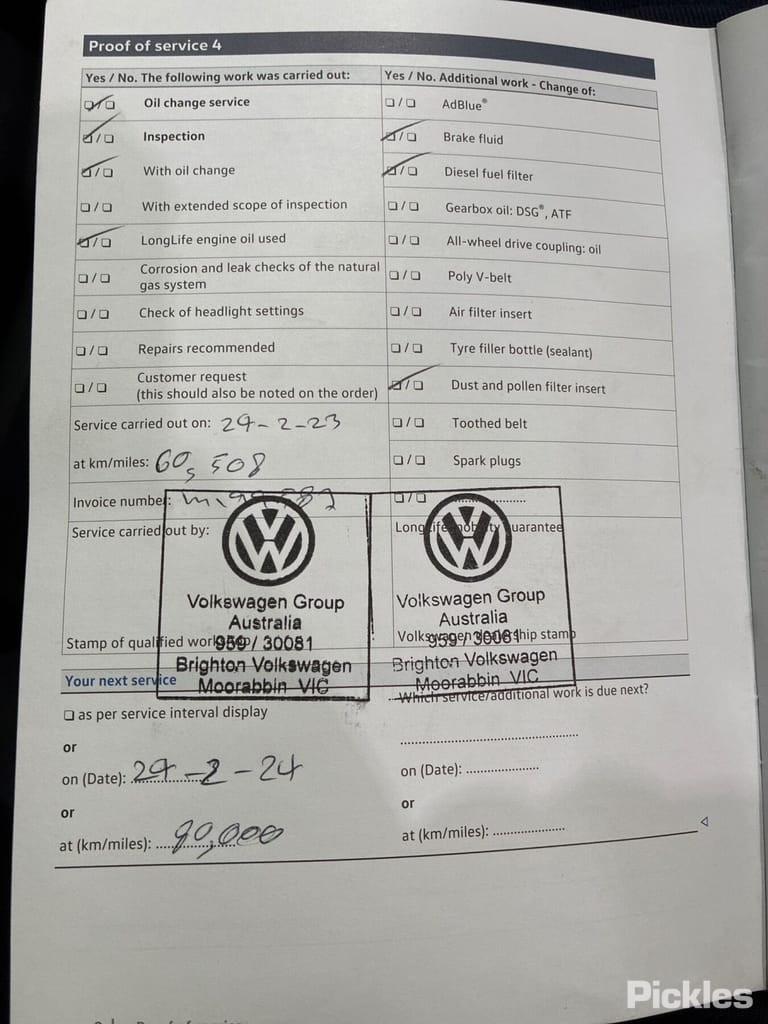 Proof of service 4
Yes / No. The following work was carried out:
Oil change service
Inspection
With oil change
With extended scope of inspection
LongLife engine oil used
Corrosion and leak checks of the natural
gas system
Check of headlight settings
Repairs recommended
Customer request
(this should also be noted on the order)
Service carried out on: 29-2-23
at km/miles: 60,508
Invoice number:
Service carried out by:
Volkswagen Group
Australia
959 / 30081
Brighton Volkswagen
Moorabbin VIC
Stamp of qualified workshop
Yes / No. Additional work - Change of:
AdBlue®
Brake fluid
Diesel fuel filter
Gearbox oil: DSG®, ATF
All-wheel drive coupling: oil
Poly V-belt
Air filter insert
Tyre filler bottle (sealant)
Dust and pollen filter insert
Toothed belt
Spark plugs
LongLife mobility guarantee
Volkswagen Group
Australia
959 / 30081
Brighton Volkswagen
Moorabbin VIC
Volkswagen dealership stamp
Your next service
as per service interval display
or
on (Date): 29-2-24
or
at (km/miles): 90,000
Which service/additional work is due next?
on (Date):
or
at (km/miles):
Pickles